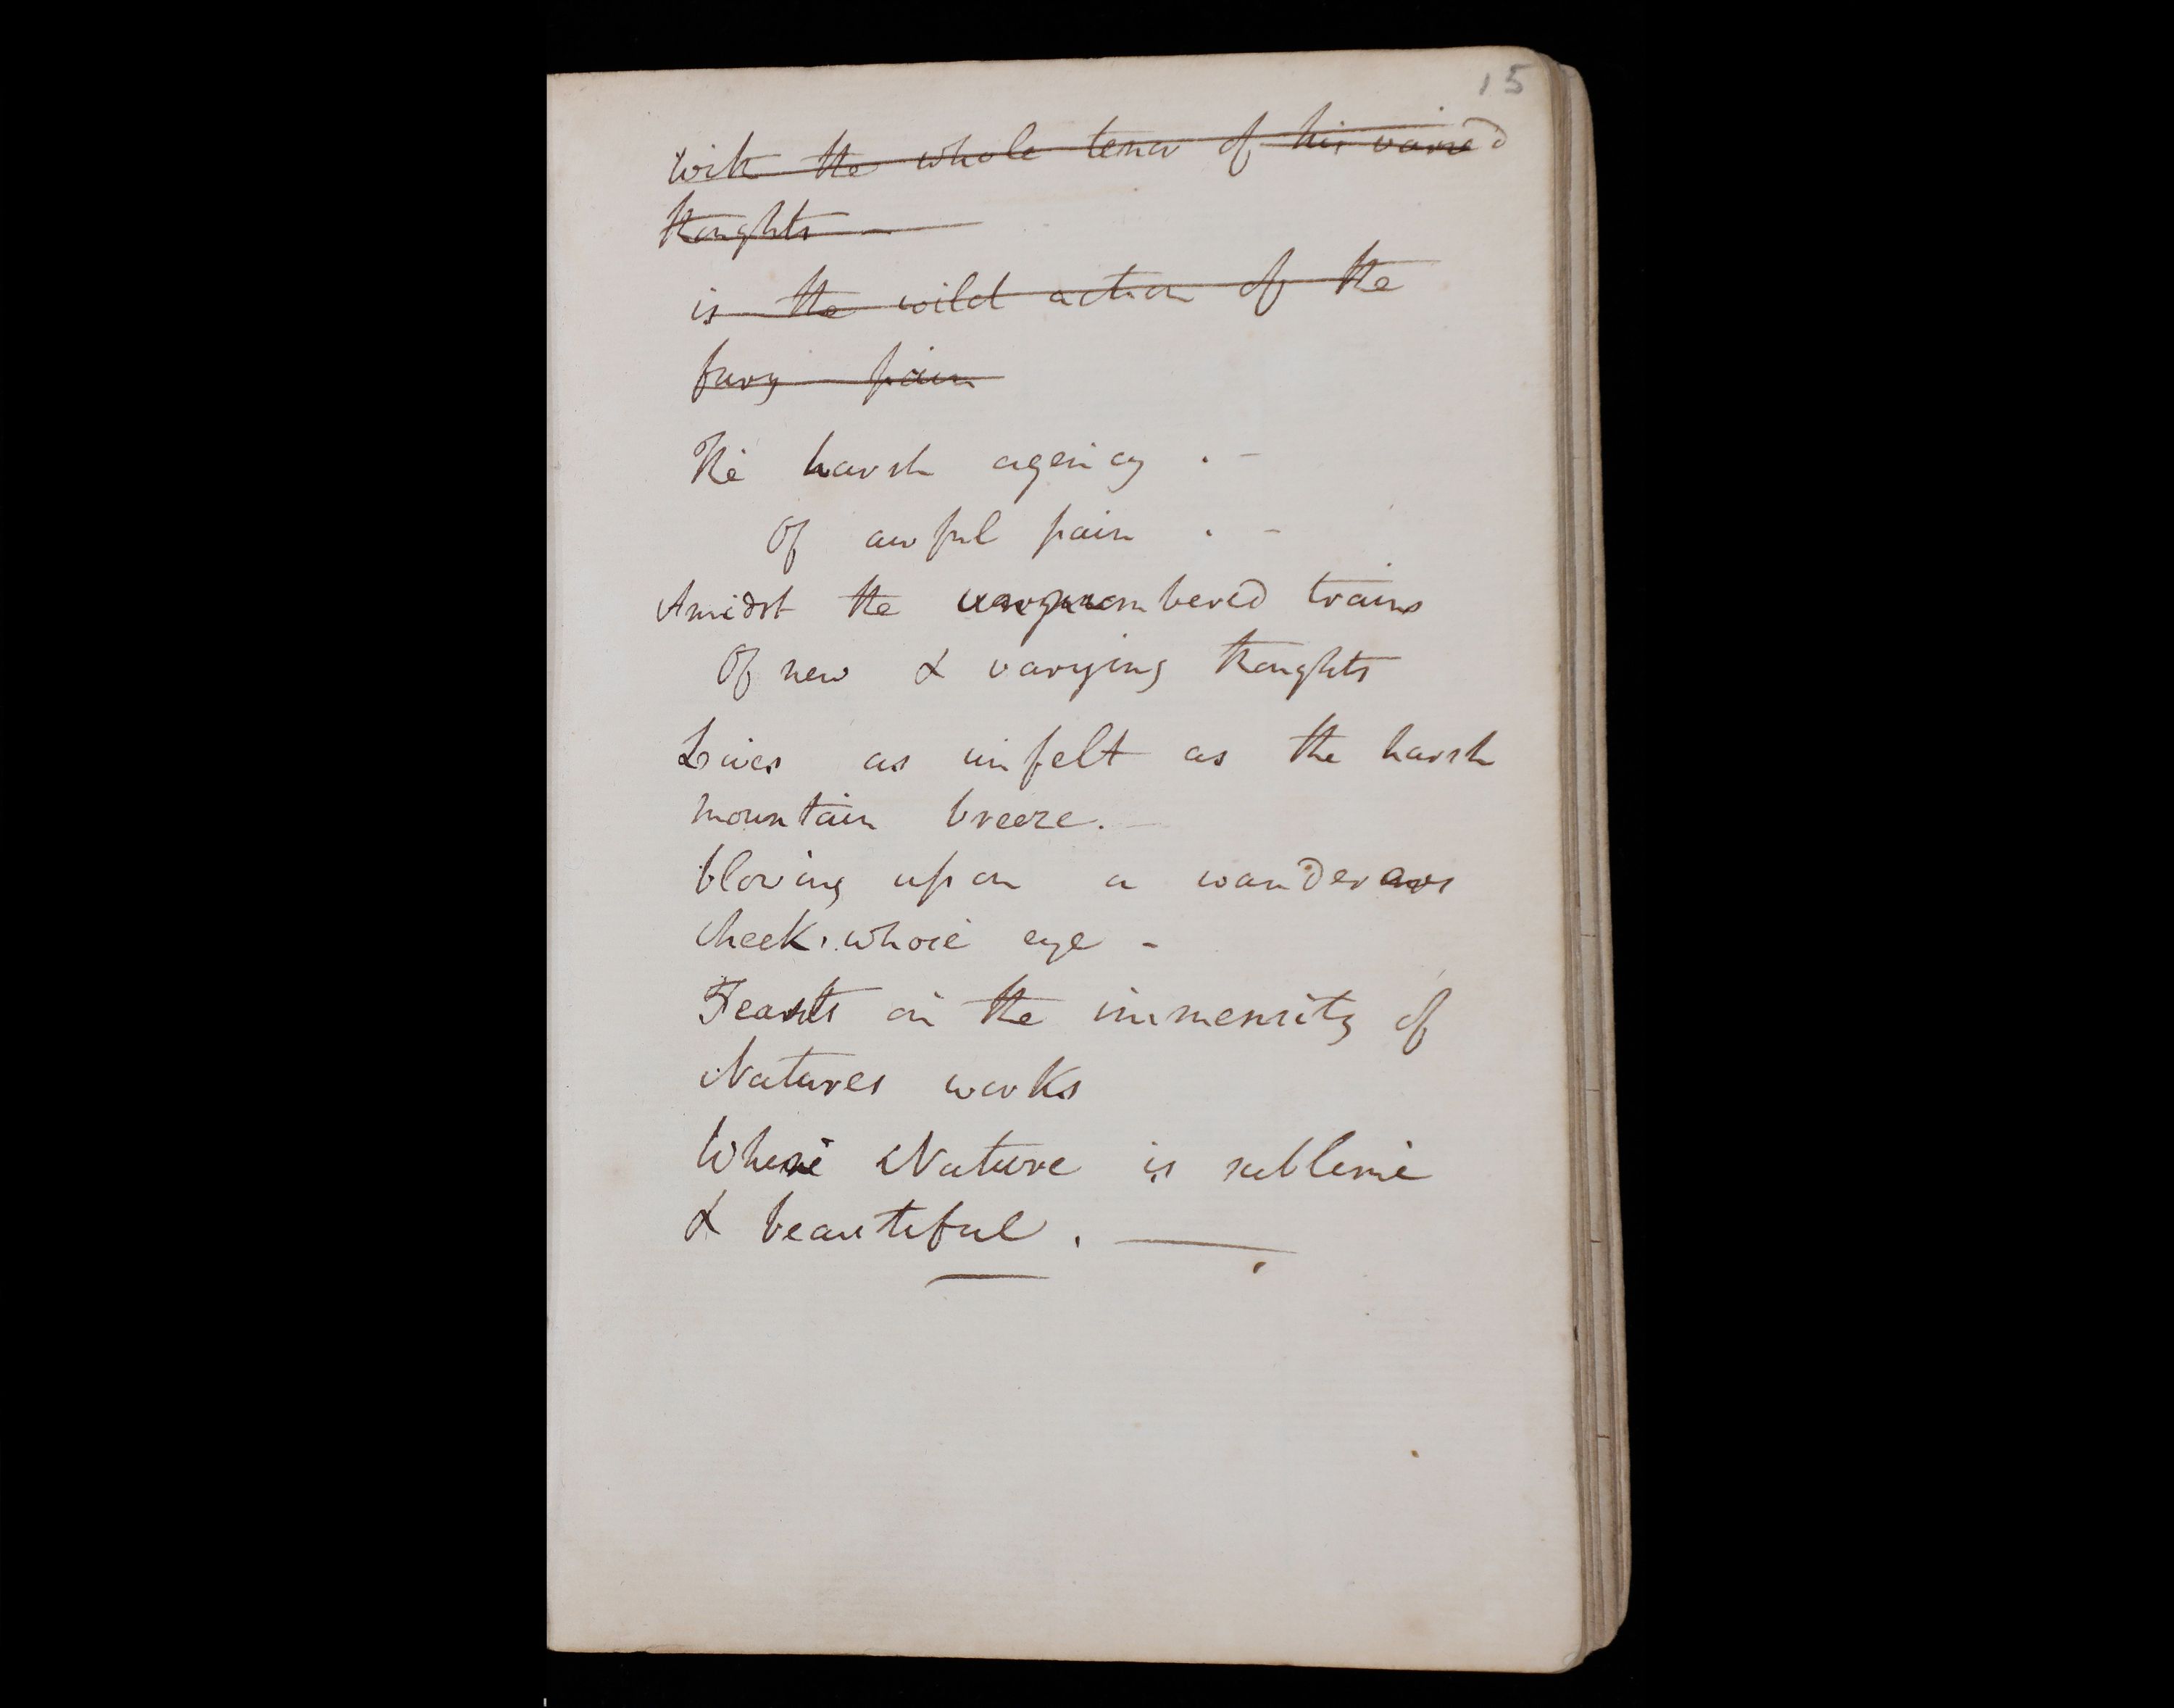 15
With the whole tenor of his varied
thoughts —
is the wild action of the
fury pain
The harsh agency . –
Of awful pain . –
Amidst the trains
Of new & varying thoughts
Lives as unfelt as the harsh
mountain breeze. —
blowing upon a wanderers
cheek. whose eye –
Feasts on the immensity of
Natures works
Where Nature is sublime
& beautiful . ——